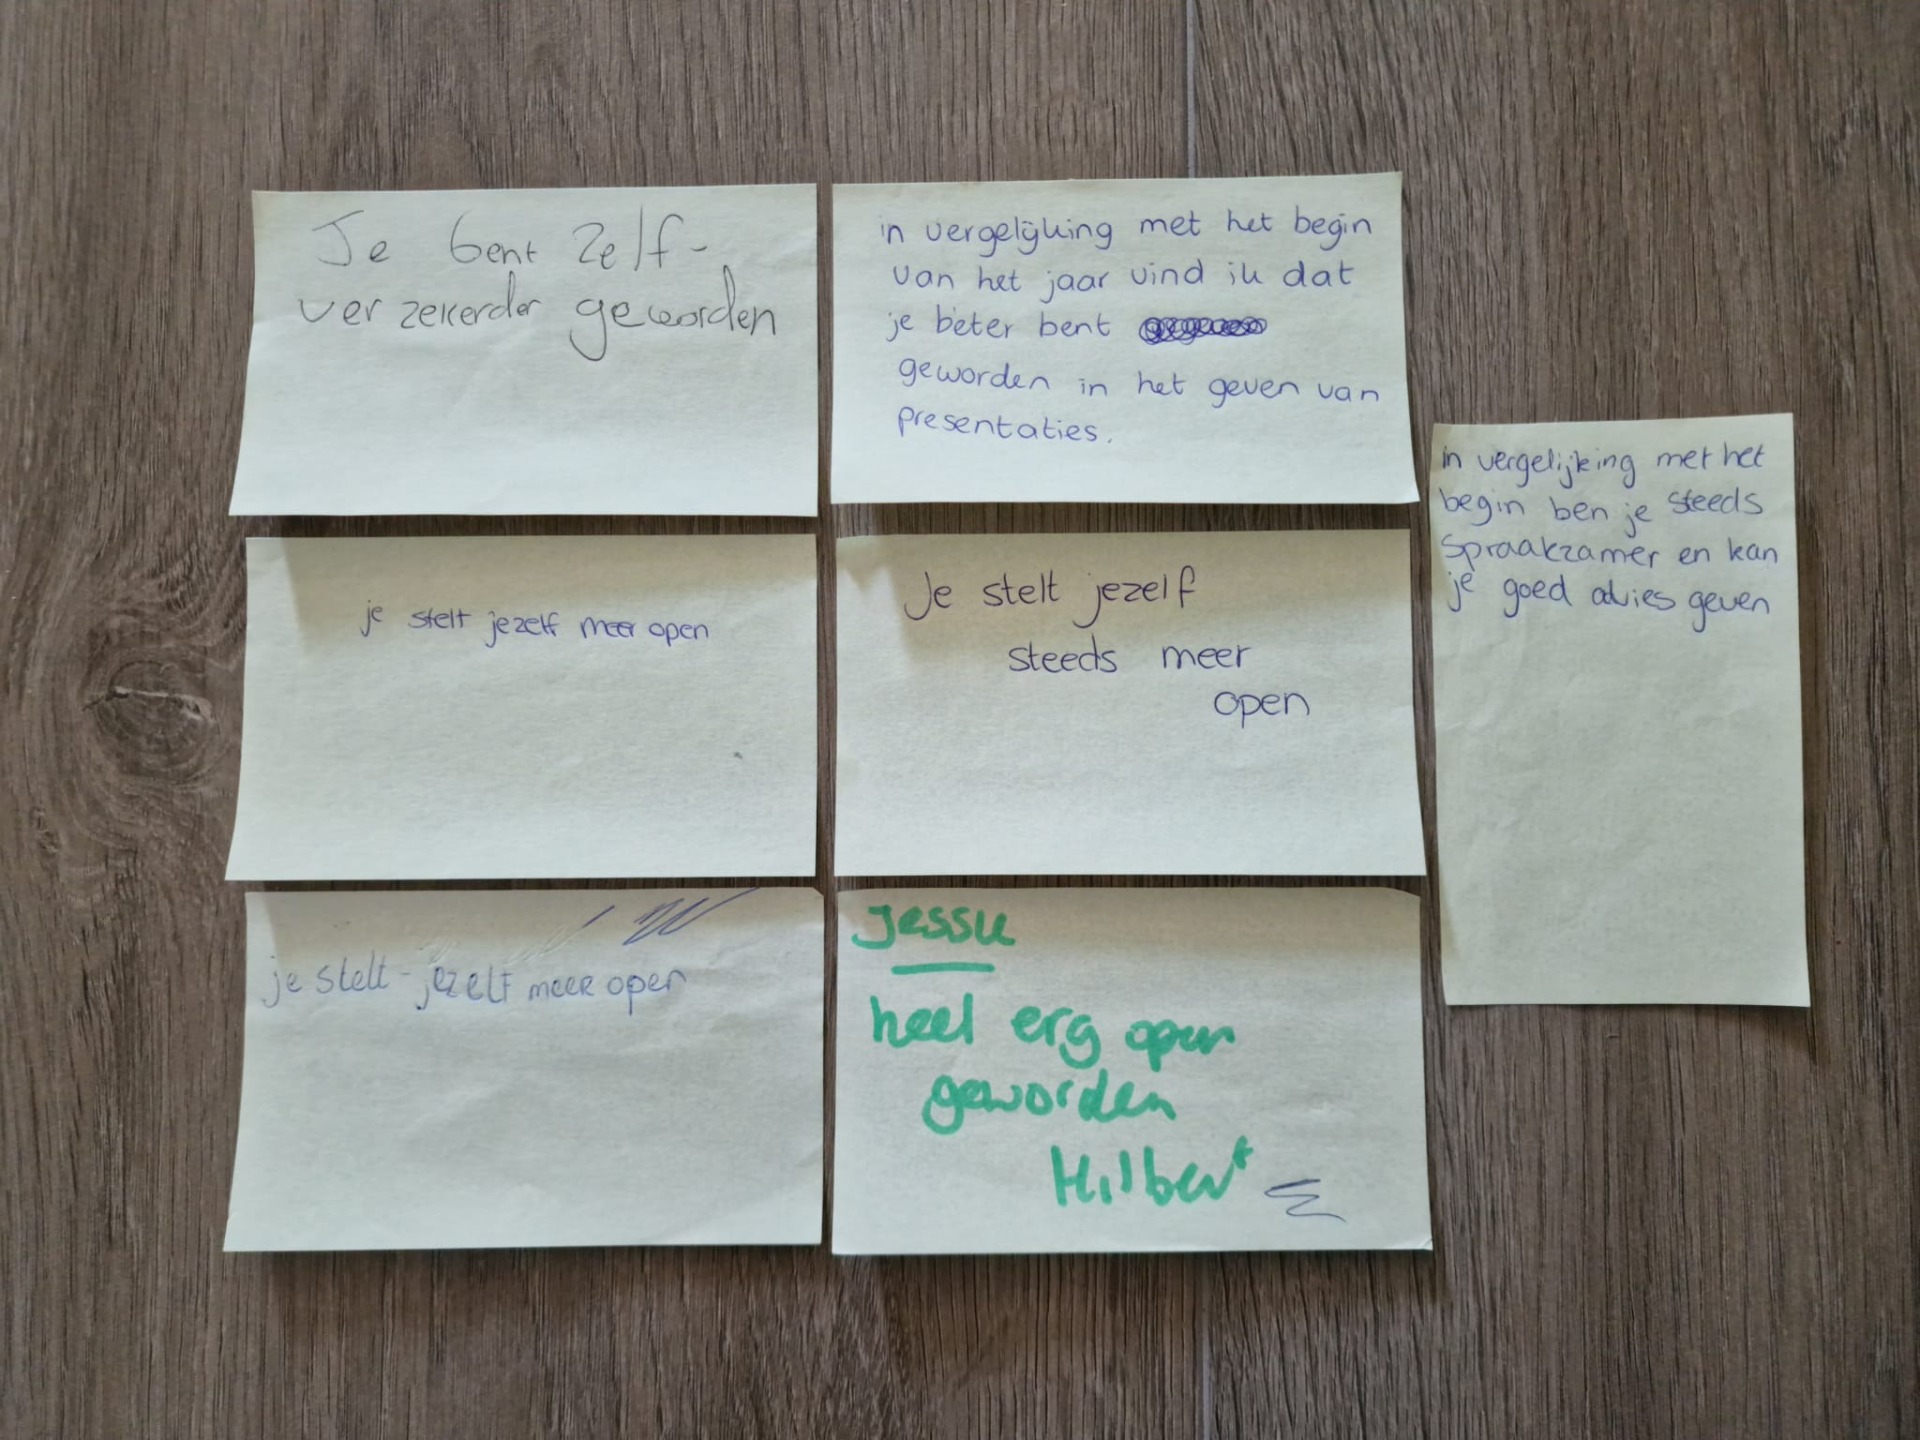 Je bent Zelf-
verzekerder geworden
in vergelijking met het begin
van het jaar vind ik dat
je beter bent
geworden in het geven van
presentaties.
in vergelijking met het
begin ben je steeds
spraakzamer en kan
je goed advies geven
je stelt jezelf meer open
Je stelt jezelf
steeds meer
open
je stelt jezelf meer open
Jessie
heel erg open
geworden
Hilbert